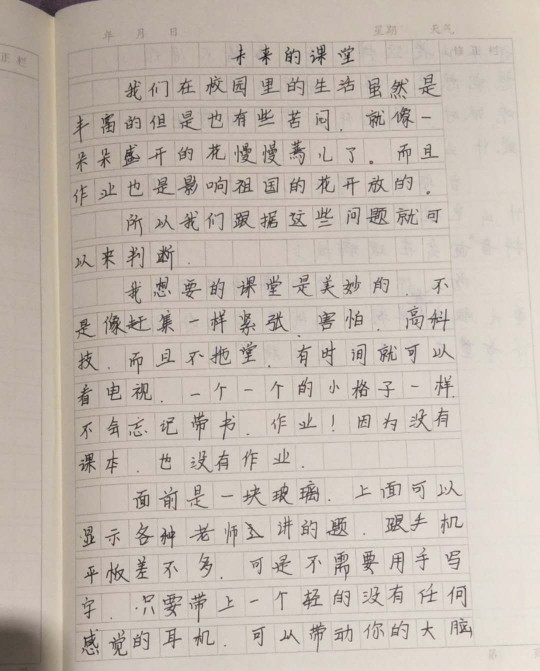 年 月 日 星期 天气
未来的课堂
我们在校园里的生活虽然是
丰富的但是也有些苦闷．就像一
朵朵盛开的花慢慢蔫儿了。而且
作业也是影响祖国的花开放的．
所以我们跟据这些问题就可
以来判断．
我想要的课堂是美妙的．不
是像赶集一样紧张、害怕．高科
技．而且不拖堂．有时间就可以
看电视．一个一个的小格子一样．
不会忘记带书．作业！因为没有
课本．也没有作业．
面前是一块玻璃．上面可以
显示各种老师讲的题．跟手机
平板差不多．可是不需要用手写
字．只要带上一个轻的没有任何
感觉的耳机．可以带动你的大脑